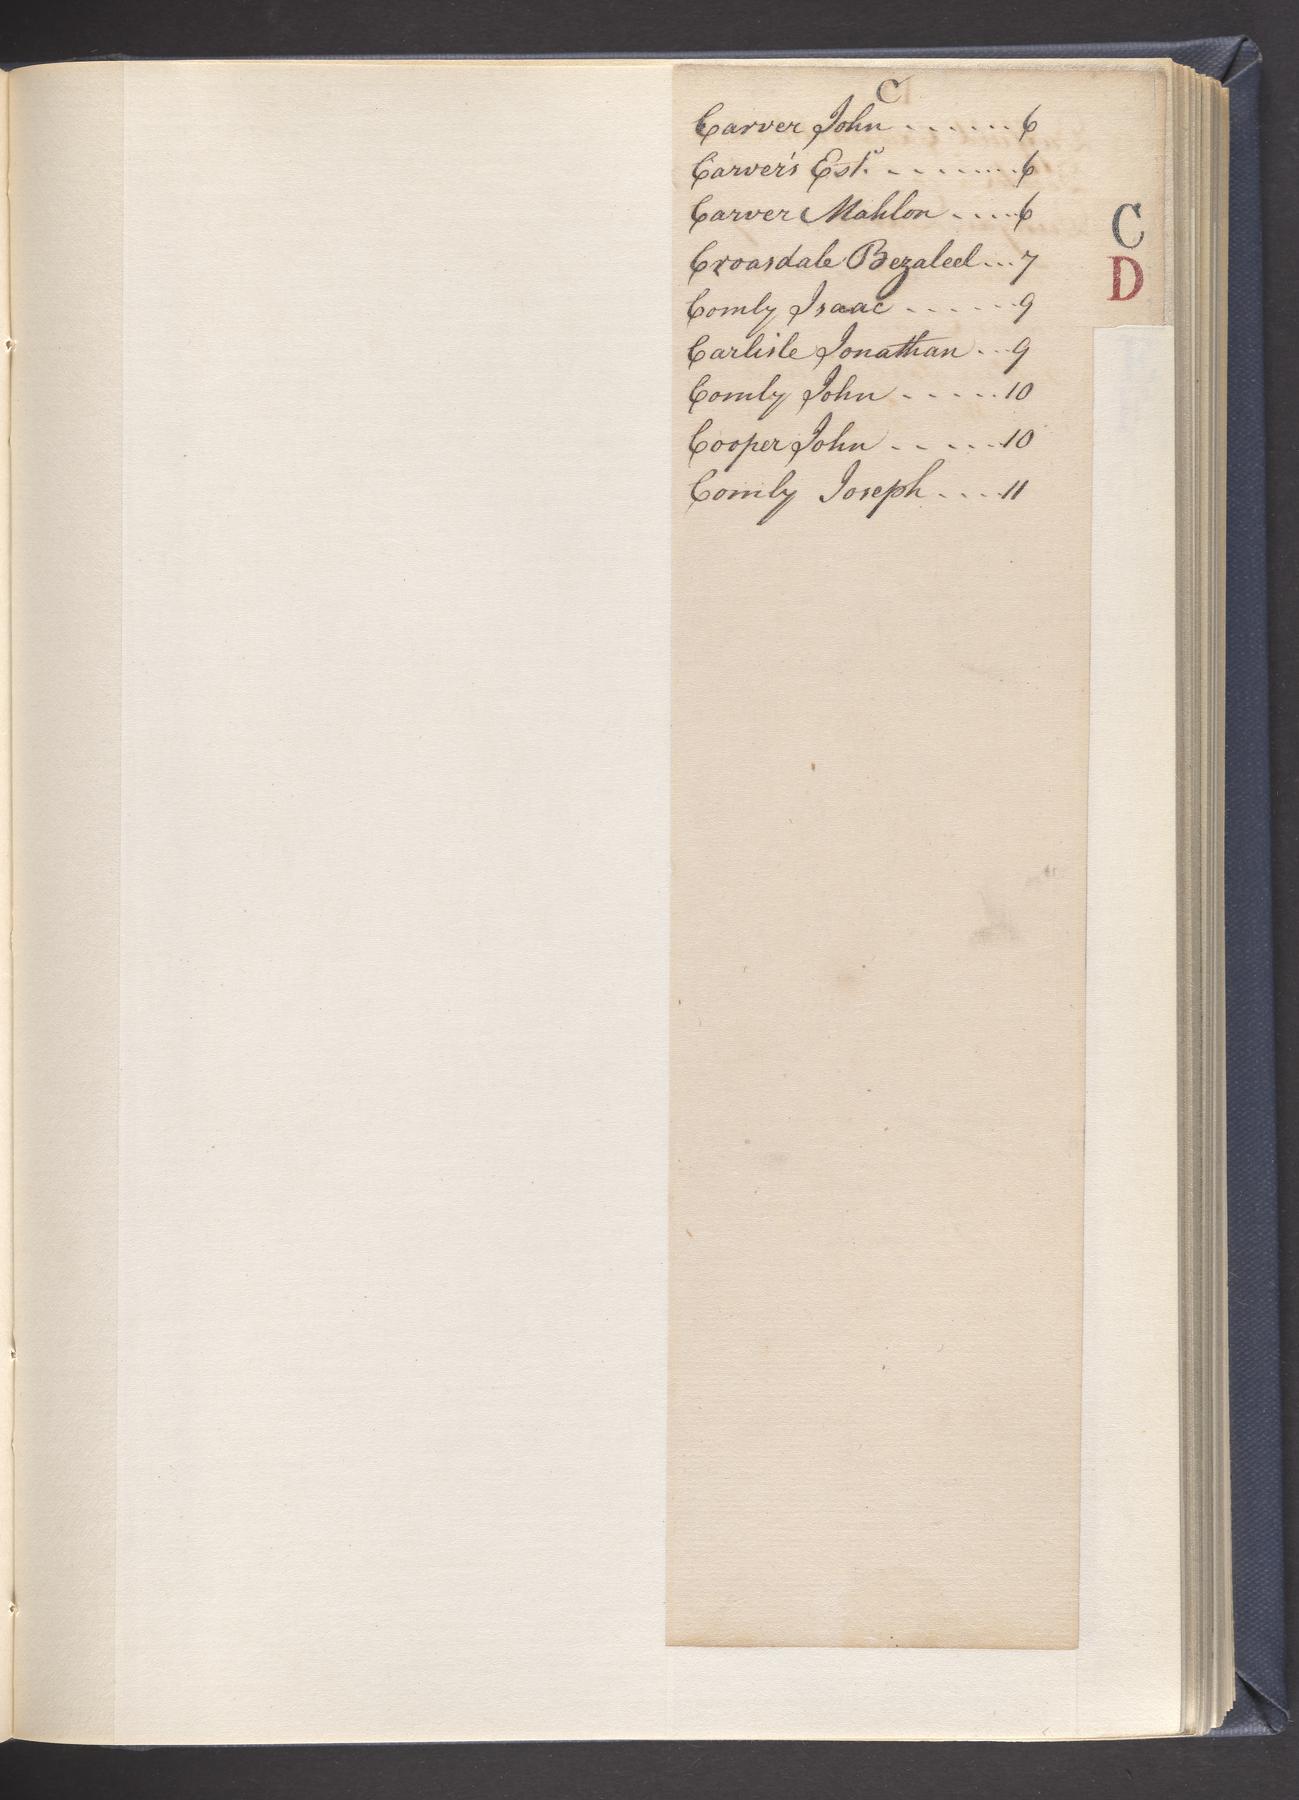 C
Carver John ...... 6
Carver's Estr. ........ 6
Carver Mahlon .... 6
Croasdale Bezaleel ... 7
Comly Isaac ...... 9
Carlisle Jonathan ... 9
Comly John ..... 10
Cooper John ..... 10
Comly Joseph .... 11
C
D